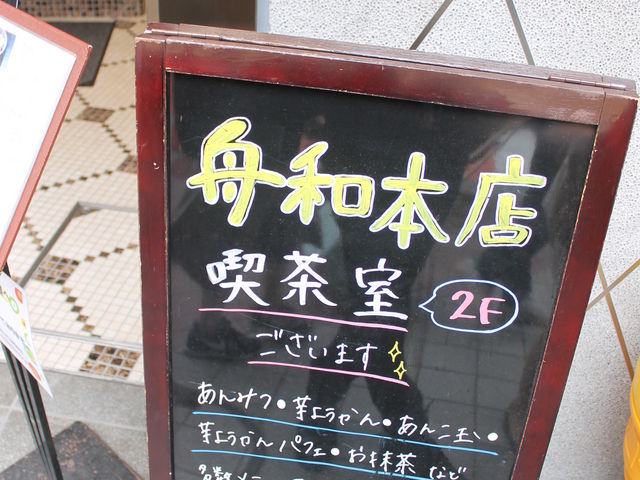 舟和本店
喫茶室 2F
ございます
あんみつ・芋ようかん・あんこ玉・
芋ようかんパフェ・お抹茶 など
多数メニュー